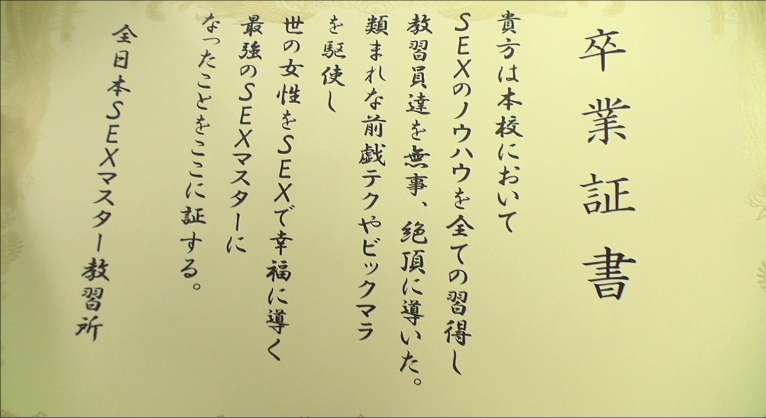 卒業証書
貴方は本校において
SEXのノウハウを全ての習得し
教習員達を無事、絶頂に導いた。
類まれな前戯テクやビックマラ
を駆使し
世の女性をSEXで幸福に導く
最強のSEXマスターに
なったことをここに証する。
全日本SEXマスター教習所